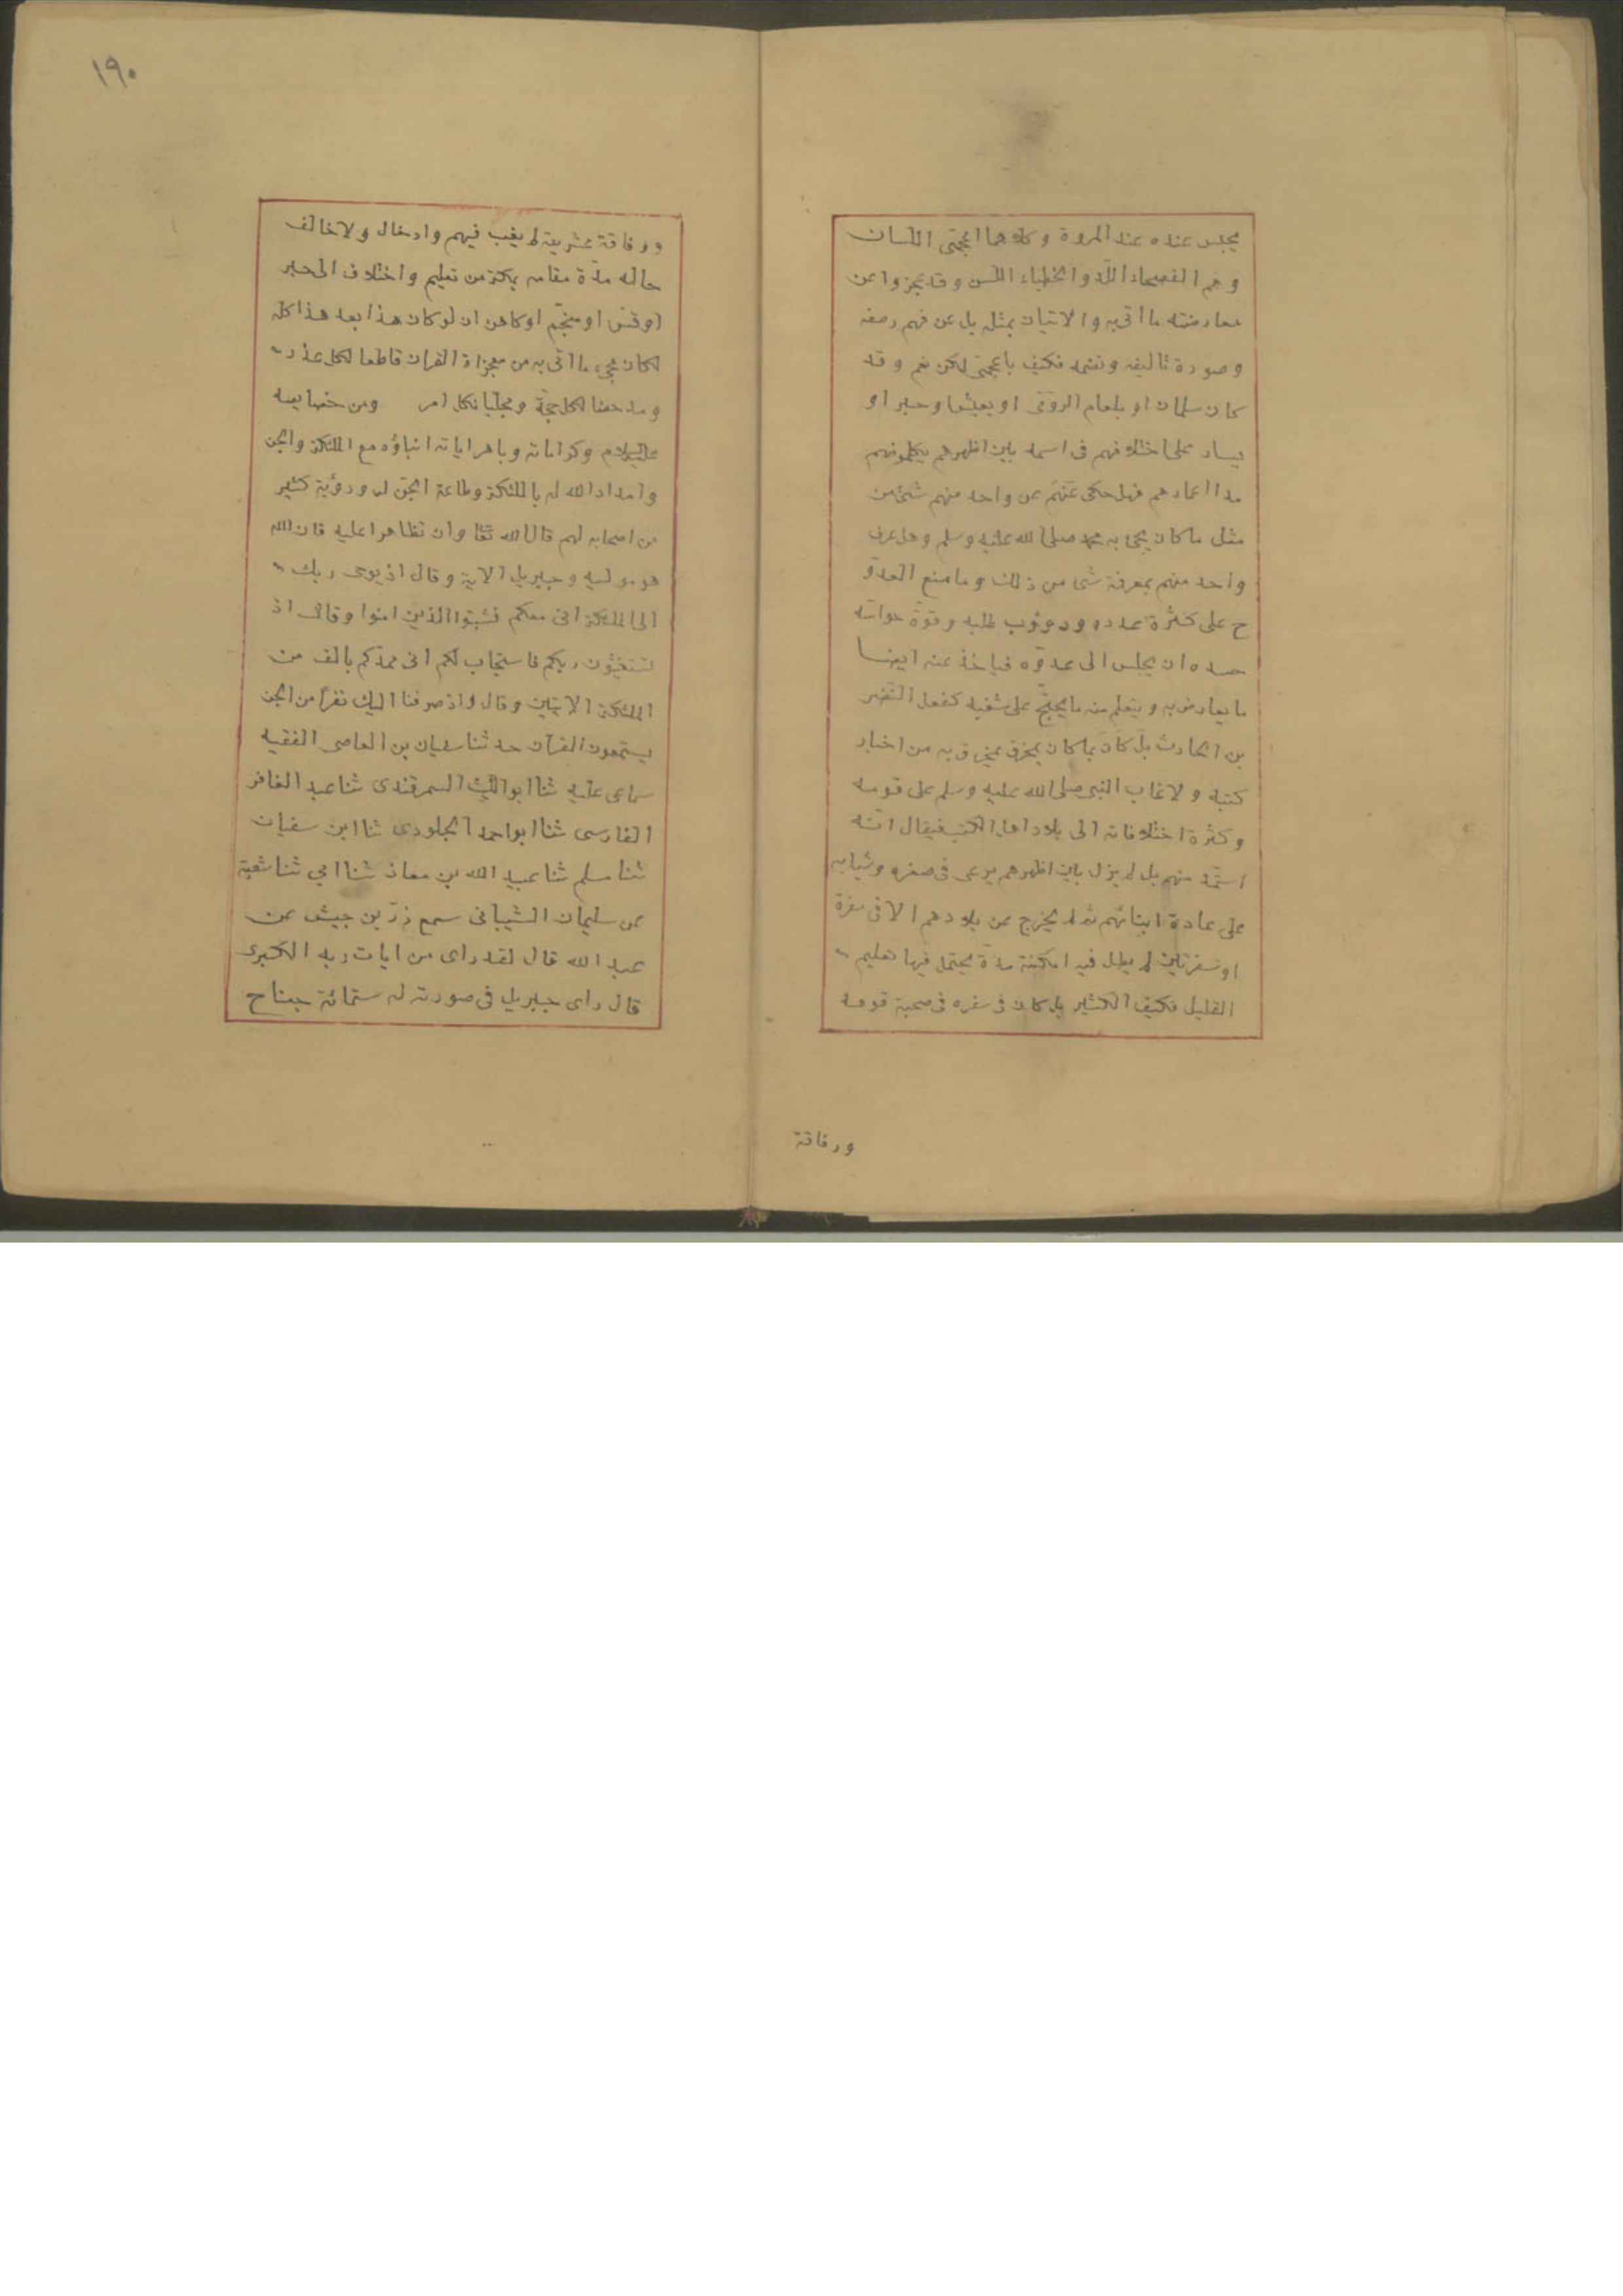 يجلس عنده عند المروة وكلاهما اعجمى اللسان
وهم الفصحاء اللد والخطباء اللسن وقد عجزوا عن
معارضته ما اتى به والاتيان بمثله بل عن فهم رصفه
وصورة تاليفه ونظمه فكيف باعجمى لكن نعم وقد
كان سلمان او بلعام الرومى او يعيش او جبر او
يسار على اختلافهم فى اسمه بين اظهرهم يكلمونهم
مدا اعمارهم فهل حكى عنهم عن واحد منهم شئ من
مثل ما كان يجئ به محمد صلى الله عليه وسلم وهل عرف
واحد منهم بمعرفة شئ من ذلك وما منع العدو
ح على كثرة عدده ودوئوب طلبه وقوة
حسده ان يجلس الى عدوه فياخذ عنه ايضا
ما يعارض به ويتعلم منه ما يحتج على شغبه كفعل النضر
بن الحارث بل كان بما كان يمخرق به من اخبار
كتبه ولا غاب النبى صلى الله عليه وسلم على قومه
وكثرة اختلافاته الى بلاد اهل الكتب فيقال انه
استمد منهم بل لم يزل بين اظهرهم يرعى فى صغره وشبابه
على عادة ابنائهم ثم لم يخرج عن بلادهم الا فى سفرة
او سفرتين لم يطل فيه امكنة مدة يحتمل فيها تعليم
القليل فكيف الكثير بل كان فى سفره فى صحبة قومه
ورفاقة
١٩٠
ورفاقة عشريته لم يغب فيهم وادخال ولا خالف
حاله مدة مقامه بمكة من تعليم واختلاف الى حبر
او قس او منجم او كاهن ان لو كان هذا بعد هذا كله
لكان مجئ ما اتى به من معجزاة القران قاطعا لكل عذر
ومدحضا لكل حجة ومجليا لكل امر ومن خصايصه
عليه السلام وكراماته وباهر اياته انباؤه مع الملئكة والجن
وامداد الله له بالملئكة وطاعة الجن له ورؤية كثير
من اصحابه لهم قال الله تعا وان تظاهرا عليه فان الله
هو موليه وجبريل الاية وقال اذ يوحى ربك
الى الملئكة انى معكم فثبتوا الذين امنوا وقال اذ
تستغيثون ربكم فاستجاب لكم انى ممدكم بالف من
الملئكة الايتين وقال واذ صرفنا اليك نفرا من الجن
يستمعون القرآن حدثنا سفيان بن العاصى الفقيه
سماعى عليه ثنا ابو الليث السمرقندى ثنا عبد الغافر
الفارسى ثنا ابو احمد الجلودى ثنا ابن سفيان
ثنا مسلم ثنا عبيد الله بن معاذ ثنا ابي ثنا شعبة
عن سليمان الشيبانى سمع زر بن حبيش عن
عبد الله قال لقد راى من ايات ربه الكبرى
قال راى جبريل فى صورته له ستمائة جناح